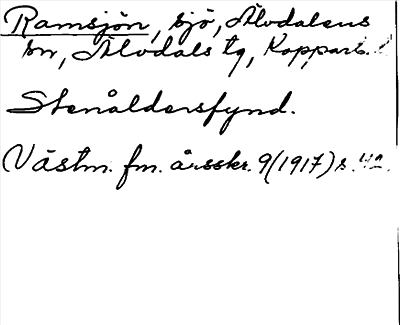 Ramsjön, sjö, Älvdalens
sn, Älvdals tg, Kopparb. l.
Stenåldersfynd.
Västm. fm. årsskr. 9(1917) s. 42.